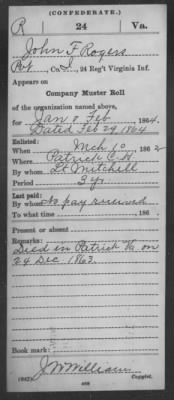 (CONFEDERATE.)
R 24 Va.
John F Rogers
Pvt, Co. I, 24 Reg't Virginia Inf.
Appears on
Company Muster Roll
of the organization named above,
for Jan & Feb, 1864.
Dated Feb 29, 1864
Enlisted:
When Mch 10, 1862
Where Patrick C.H
By whom Lt Mitchell
Period 3 yr
Last paid:
By whom No pay received
To what time , 186 .
Present or absent
Remarks:
Died in Patrick Va on
24 Dec. 1863.
Book mark:
J W William
(642) Copyist.